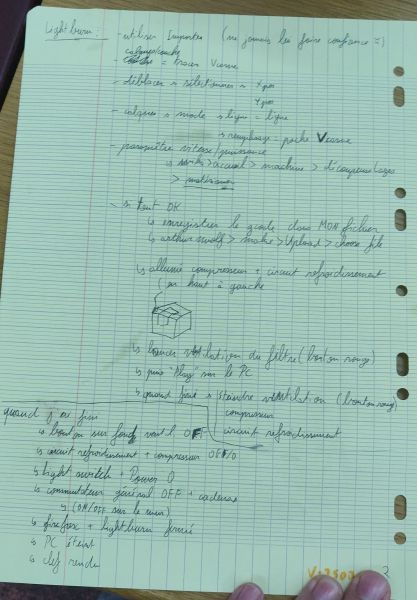 Lightburn :
- utiliser Importer (ne jamais lui faire confiance =)
calques/couche
- = tracer Vcarve
- déplacer → sélectionner → X pos
Y pos
- calques → mode ↳ ligne = ligne
↳ remplissage = poche Vcarve
- paramètre vitesse/puissance
↳ > accueil > machine > découpeuse laser
> matériaux
- si tout OK
↳ enregistrer le gcode dans MON fichier
↳ arthur wolf > make > Upload > choose file
↳ allume compresseur + circuit refroidissement
en haut à gauche
↳ lancer ventilation du filtre (bouton rouge)
↳ puis "Play" sur le PC
↳ quand finit → éteindre ventilation (bouton rouge)
compresseur
circuit refroidissement
quand j'ai fini
↳ bouton sur fond vert OFF
↳ circuit refroidissement + compresseur OFF/O
↳ light switch + Power O
↳ commutateur général OFF + cadenas
↳ (ON/OFF sur le mur)
↳ firefox + lightburn fermé
↳ PC éteint
↳ clef rendu
2